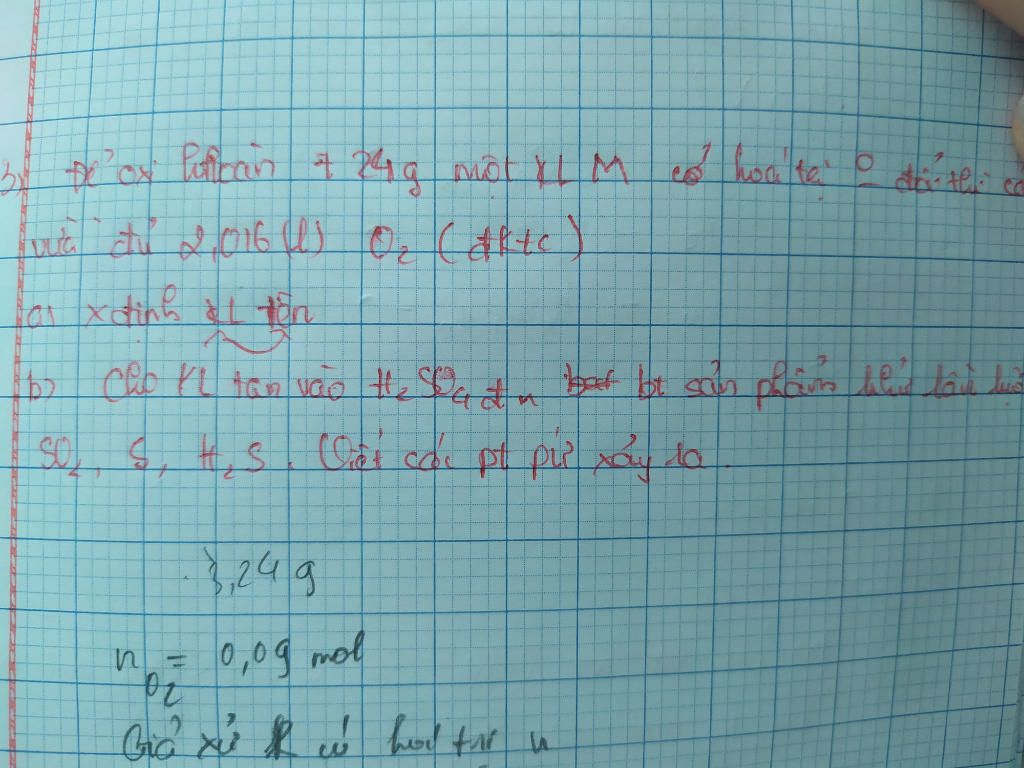 3) Để oxi hoàn t 24g một KL M có hoá trị 0 đổi thì cầ
vừa đủ 2,016(l) O₂ (đktc)
a) xđịnh KL tên
b) Cho KL tan vào H₂SO₄ đ n bt sản phẩm khử lần lượ
SO₂, S, H₂S. Viết các pt pứ xảy ra.
3,24g
n O₂ = 0,09 mol
Giả xử R có hoá trị n